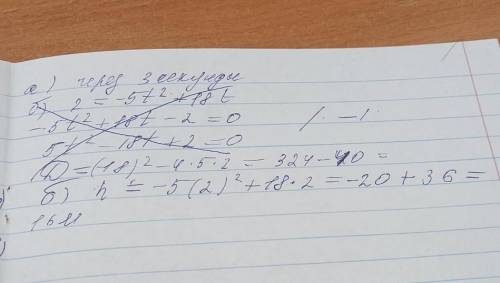 а) через 3 секунды
б) 2 = -5t² + 18t
-5t² + 18t - 2 = 0 / · -1
5t² - 18t + 2 = 0
D = (18)² - 4·5·2 = 324 - 40 =
б) h = -5(2)² + 18·2 = -20 + 36 =
16м